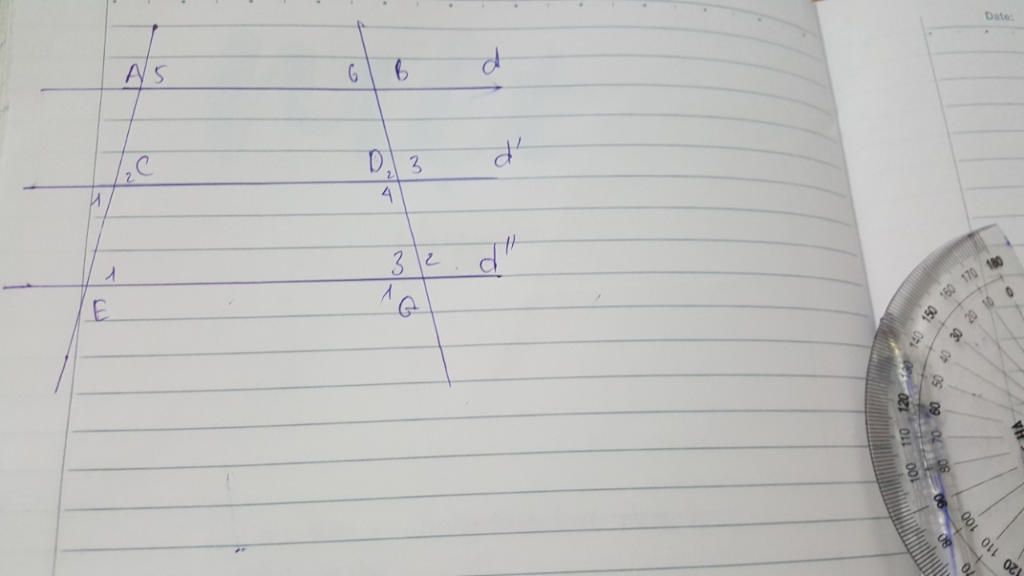 Date:
A 5 6 B d
2 C D 2 3 d'
1 4
1 3 2 d''
E 1 G
180 170 160 150 140 120 110 100 90 80 70
0 10 20 30 40 50 60 70 80 90 100 110 120